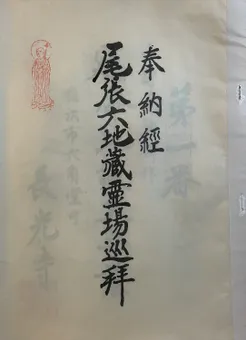 奉納經
尾張六地藏靈場巡拜
第一番
長光寺